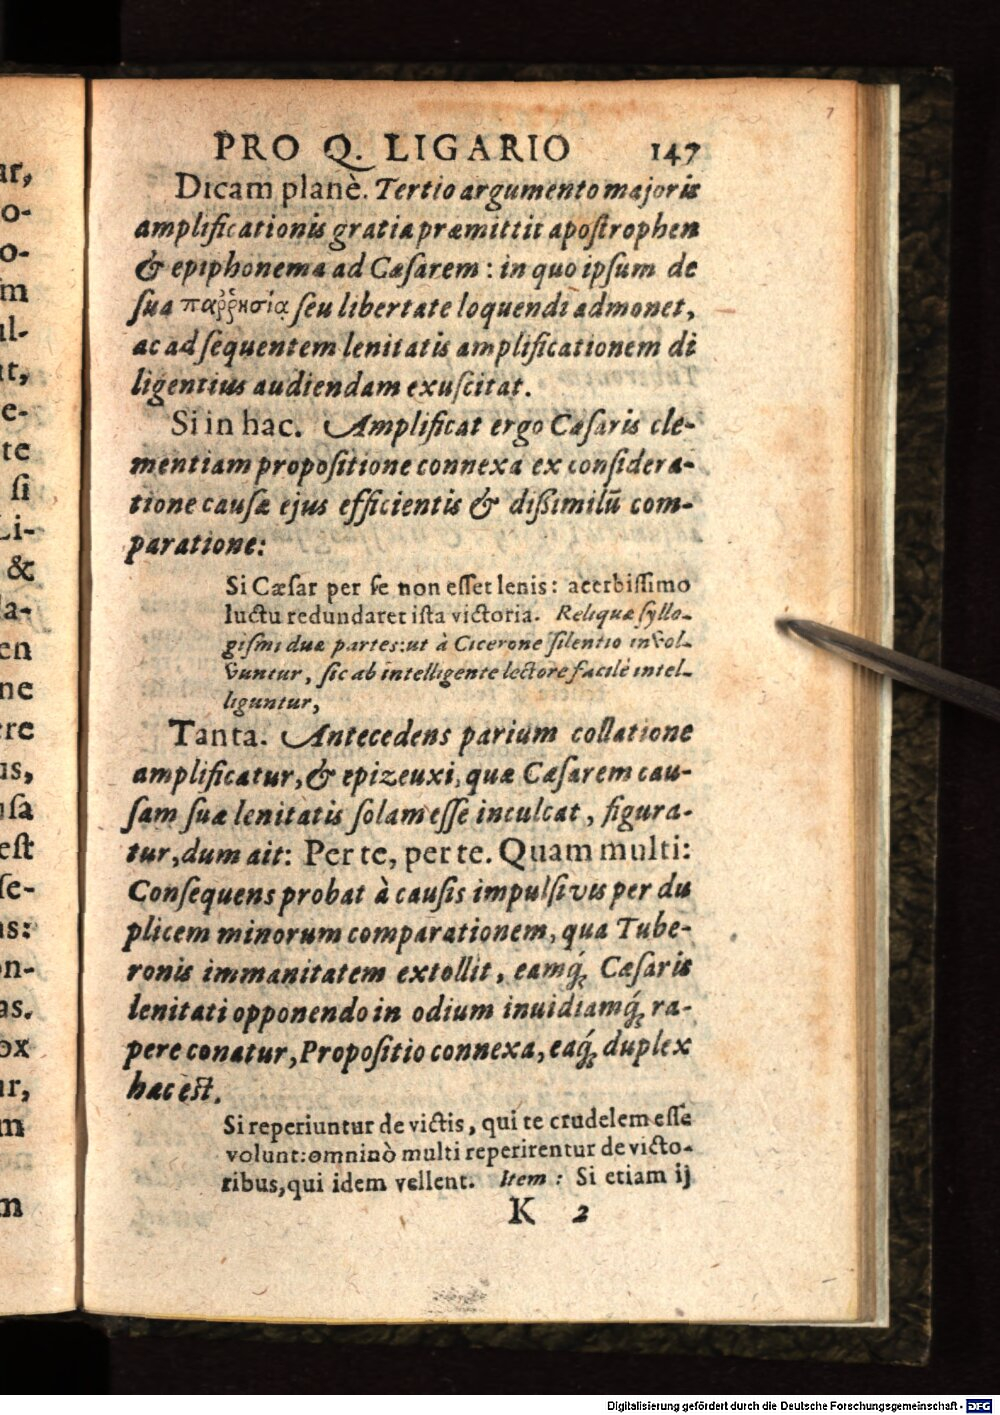 PRO Q. LIGARIO 147
Dicam planè. Tertio argumento majoris
amplificationis gratia præmittit apostrophen
& epiphonema ad Cæsarem: in quo ipsum de
sua παῤῥησίᾳ seu libertate loquendi admonet,
ac ad sequentem lenitatis amplificationem di
ligentius audiendam exuscitat.
Si in hac. Amplificat ergo Cæsaris cle-
mentiam propositione connexa ex considera-
tione causæ ejus efficientis & dißimilũ com-
paratione:
Si Cæsar per se non esset lenis: acerbissimo
luctu redundaret ista victoria. Reliquæ syllo-
gismi duæ partes: ut à Cicerone silentio invol-
vuntur, sic ab intelligente lectore facilè intel-
liguntur,
Tanta. Antecedens parium collatione
amplificatur, & epizeuxi, quæ Cæsarem cau-
sam suæ lenitatis solam esse inculcat, figura-
tur, dum ait: Per te, per te. Quam multi:
Consequens probat à causis impulsivis per du
plicem minorum comparationem, qua Tube-
ronis immanitatem extollit, eamq́; Cæsaris
lenitati opponendo in odium inuidiamq́; ra-
pere conatur, Propositio connexa, eaq́; duplex
hac est.
Si reperiuntur de victis, qui te crudelem esse
volunt: omninò multi reperirentur de victo-
ribus, qui idem vellent. Item: Si etiam ij
K 2
ar,
o-
o-
m
ul-
it,
e-
te
si
Li-
&
la-
en
ne
ere
us,
usa
est
se-
as:
on-
as.
ox
ur,
m
m
Digitalisierung gefördert durch die Deutsche Forschungsgemeinschaft - DFG